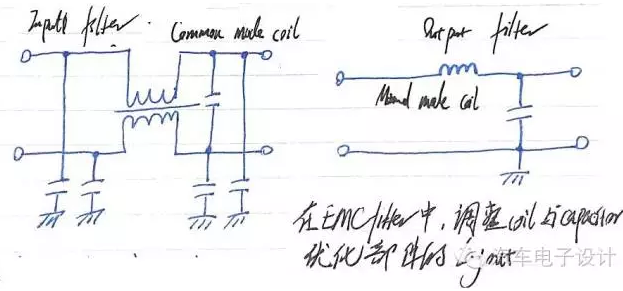 Input filter
Common mode coil
Output filter
mode coil
在EMC filter中，调整coil与capacitor
优化部件的
汽车电子设计